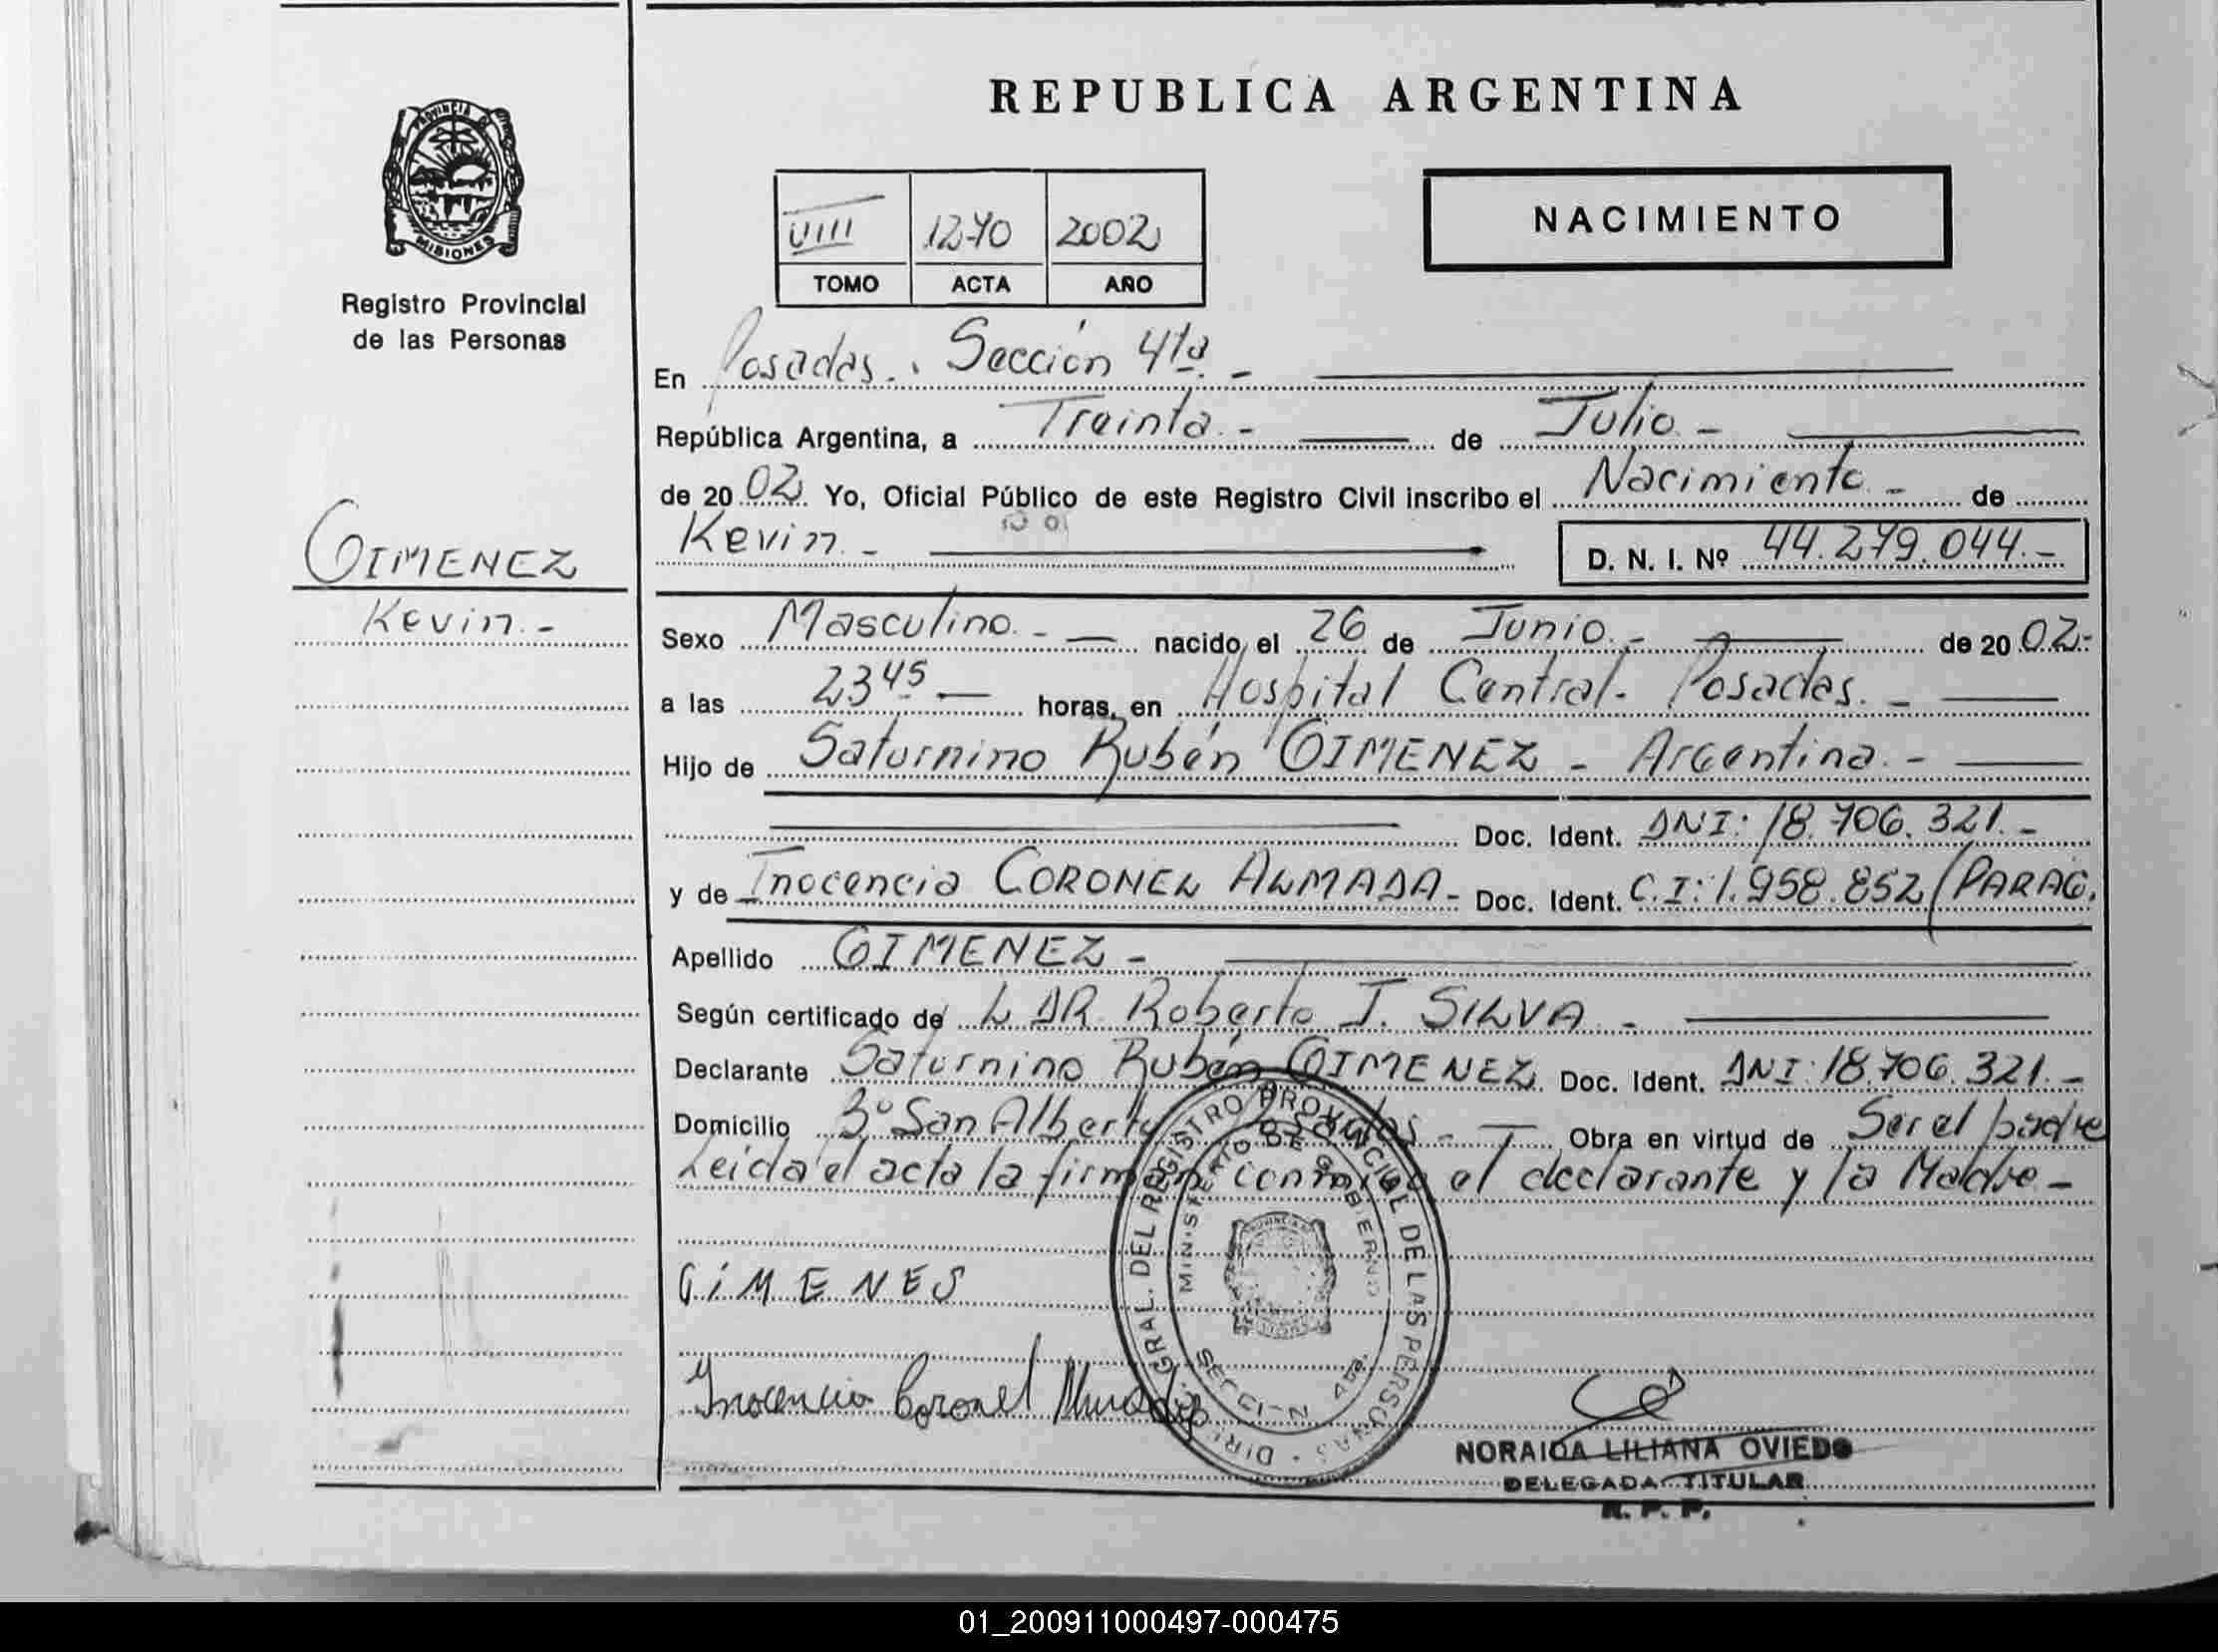 REPUBLICA ARGENTINA
PROVINCIA DE
MISIONES
Registro Provincial
de las Personas
VIII 1270 2002
TOMO ACTA AÑO
NACIMIENTO
En Posadas. Sección 4ta. -
República Argentina, a Treinta. - de Julio -
de 20 02 Yo, Oficial Público de este Registro Civil inscribo el Nacimiento - de
Kevin. - D. N. I. Nº 44.279.044.-
GIMENEZ
Kevin. -
Sexo Masculino. - nacido el 26 de Junio. - de 20 02.-
a las 23 45 horas, en Hospital Central. Posadas. -
Hijo de Saturnino Rubén GIMENEZ - Argentina. -
Doc. Ident. DNI: 18.706.321. -
y de Inocencia CORONEL ALMADA - Doc. Ident. C.I: 1.958.852/PARAG.
Apellido GIMENEZ -
Según certificado de L DR Roberto J. SILVA -
Declarante Saturnino Rubén GIMENEZ. Doc. Ident. DNI: 18.706.321. -
Domicilio Bº San Alberto Posadas - Obra en virtud de Ser el padre
Leida el acta la firman conmigo el declarante y la Madre -
GiMENES
Inocencia Coronel Almada
DIR. GRAL. DEL REGISTRO PROVINCIAL DE LAS PERSONAS
MINISTERIO DE GOBIERNO
SECCION 4ta.
NORAIDA LILIANA OVIEDO
DELEGADA TITULAR
R. P. P.
01_200911000497-000475